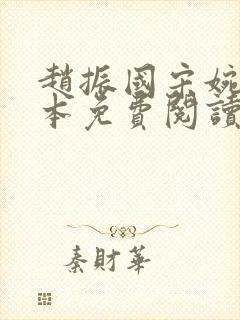 趙振國宋婉
本免費閱讀
秦財華